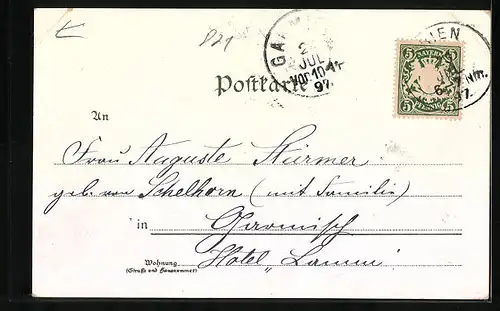 821
GA
2
JUL
Vor 10-11
97.
Postkarte
CHEN
BAYERN
5 5
5 5
PFENNIG
Nm.
97.
An
Frau Auguste Stürmer
geb. von Schelhorn (mit Familie)
in Garmisch
Hotel „Lamm"
Wohnung
(Straße und Hausnummer)